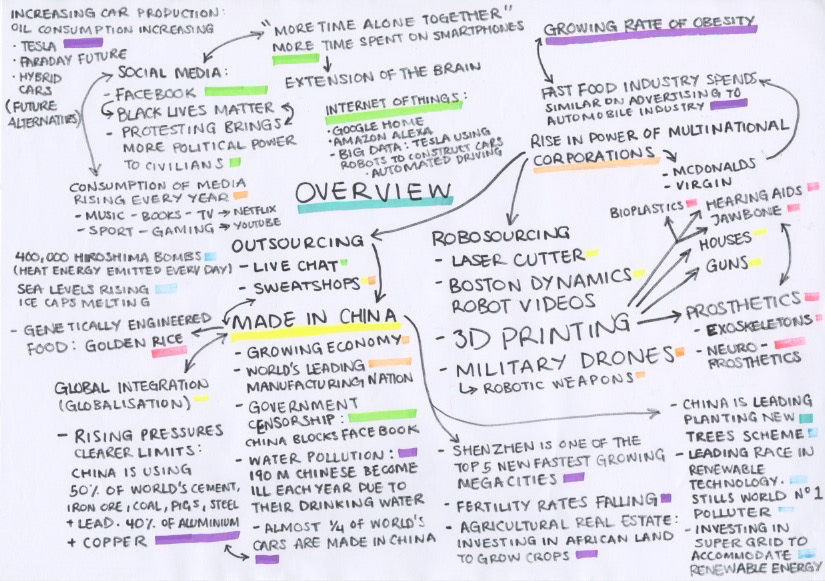 INCREASING CAR PRODUCTION:
OIL CONSUMPTION INCREASING
· TESLA
· FARADAY FUTURE
· HYBRID
CARS
(FUTURE
ALTERNATIVES)
"MORE TIME ALONE TOGETHER"
MORE TIME SPENT ON SMARTPHONES
EXTENSION OF THE BRAIN
GROWING RATE OF OBESITY
SOCIAL MEDIA:
- FACEBOOK
BLACK LIVES MATTER
- PROTESTING BRINGS
MORE POLITICAL POWER
TO CIVILIANS
INTERNET OF THINGS:
· GOOGLE HOME
· AMAZON ALEXA
- BIG DATA: TESLA USING
ROBOTS TO CONSTRUCT CARS
· AUTOMATED DRIVING
FAST FOOD INDUSTRY SPENDS
SIMILAR ON ADVERTISING TO
AUTOMOBILE INDUSTRY
RISE IN POWER OF MULTINATIONAL
CORPORATIONS
- MCDONALDS
- VIRGIN
CONSUMPTION OF MEDIA
RISING EVERY YEAR
- MUSIC - BOOKS - TV → NETFLIX
- SPORT - GAMING → YOUTUBE
OVERVIEW
BIOPLASTICS
HEARING AIDS
JAWBONE
HOUSES
GUNS
400,000 HIROSHIMA BOMBS
(HEAT ENERGY EMITTED EVERY DAY)
SEA LEVELS RISING
ICE CAPS MELTING
OUTSOURCING
- LIVE CHAT
- SWEATSHOPS
ROBOSOURCING
- LASER CUTTER
- BOSTON DYNAMICS
ROBOT VIDEOS
- 3D PRINTING
- MILITARY DRONES
↳ ROBOTIC WEAPONS
PROSTHETICS
- EXOSKELETONS
- NEURO-
PROSTHETICS
- GENETICALLY ENGINEERED
FOOD: GOLDEN RICE
MADE IN CHINA
- GROWING ECONOMY
- WORLD'S LEADING
MANUFACTURING NATION
- GOVERNMENT
CENSORSHIP:
CHINA BLOCKS FACEBOOK
- WATER POLLUTION:
190 M CHINESE BECOME
ILL EACH YEAR DUE TO
THEIR DRINKING WATER
- ALMOST 1/4 OF WORLD'S
CARS ARE MADE IN CHINA
GLOBAL INTEGRATION
(GLOBALISATION)
- RISING PRESSURES
CLEARER LIMITS:
CHINA IS USING
50% OF WORLD'S CEMENT,
IRON ORE, COAL, PIGS, STEEL
+ LEAD. 40% OF ALUMINIUM
+ COPPER
- SHENZHEN IS ONE OF THE
TOP 5 NEW FASTEST GROWING
MEGACITIES
- FERTILITY RATES FALLING
- AGRICULTURAL REAL ESTATE:
INVESTING IN AFRICAN LAND
TO GROW CROPS
- CHINA IS LEADING
PLANTING NEW
TREES SCHEME
- LEADING RACE IN
RENEWABLE
TECHNOLOGY.
STILLS WORLD Nº1
POLLUTER
- INVESTING IN
SUPER GRID TO
ACCOMMODATE
RENEWABLE ENERGY